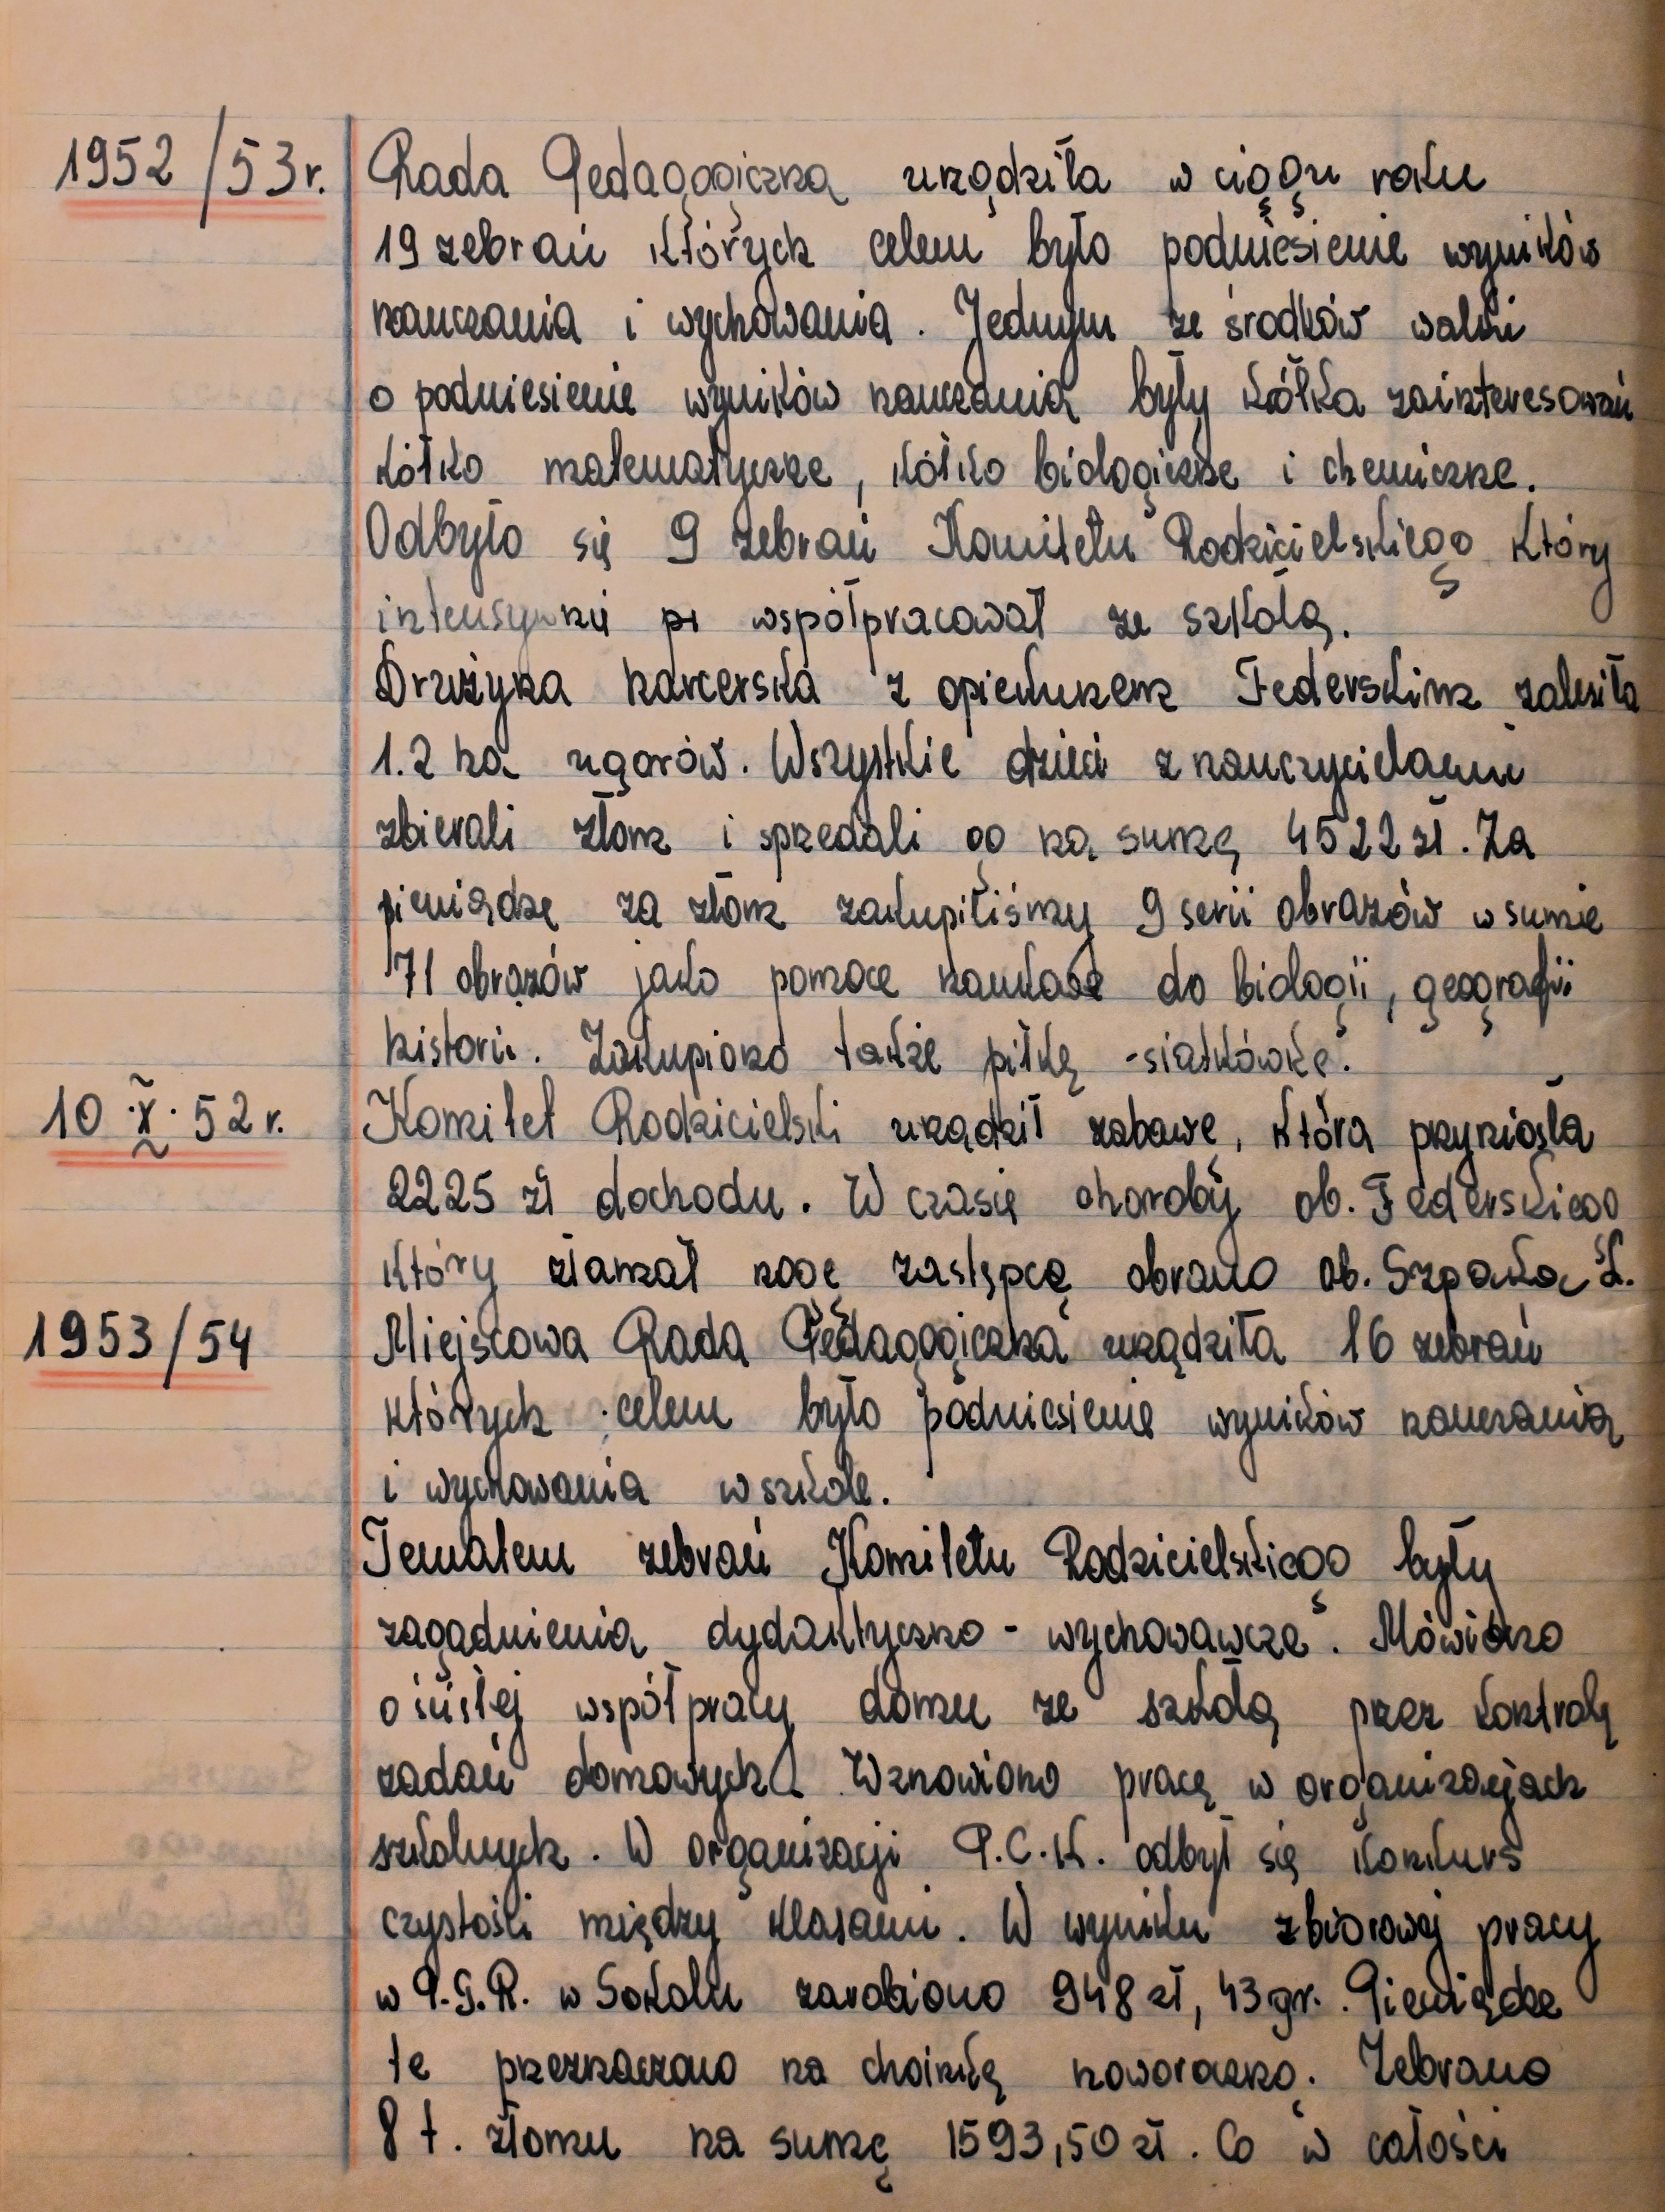 1952/53r. Rada Pedagogiczna urządziła w ciągu roku
19 zebrań których celem było podniesienie wyników
nauczania i wychowania. Jednym ze środków walki
o podniesienie wyników nauczania były kółka zainteresowań
kółko matematyczne, kółko biologiczne i chemiczne.
Odbyło się 9 zebrań Komitetu Rodzicielskiego który
intensywnie pr współpracował ze szkołą.
Drużyna harcerska z opiekunem Federskim zalesiła
1.2 ha ugorów. Wszystkie dzieci z nauczycielami
zbierali złom i sprzedali go na sumę 4522 zł. Za
pieniądze za złom zakupiliśmy 9 serii obrazów w sumie
71 obrazów jako pomoce naukowe do biologii, geografii
historii. Zakupiono także piłkę - siatkówkę.
10.X.52r. Komitet Rodzicielski urządził zabawę, która przyniosła
2225 zł dochodu. W czasie choroby ob. Federskiego
który złamał nogę zastępcą obrano ob. Szpaka L.
1953/54 Miejscowa Rada Pedagogiczna urządziła 16 zebrań
których celem było podniesienie wyników nauczania
i wychowania w szkole.
Tematem zebrań Komitetu Rodzicielskiego były
zagadnienia dydaktyczno - wychowawcze. Mówiono
o ścisłej współpracy domu ze szkołą przez kontrolę
zadań domowych. Wznowiono pracę w organizacjach
szkolnych. W organizacji P.C.K. odbył się konkurs
czystości między klasami. W wyniku zbiorowej pracy
w P.G.R. w Sokolu zarobiono 948 zł, 43 gr. Pieniądze
te przeznaczono na choinkę noworoczną. Zebrano
8 t. złomu na sumę 1593,50 zł. Co w całości